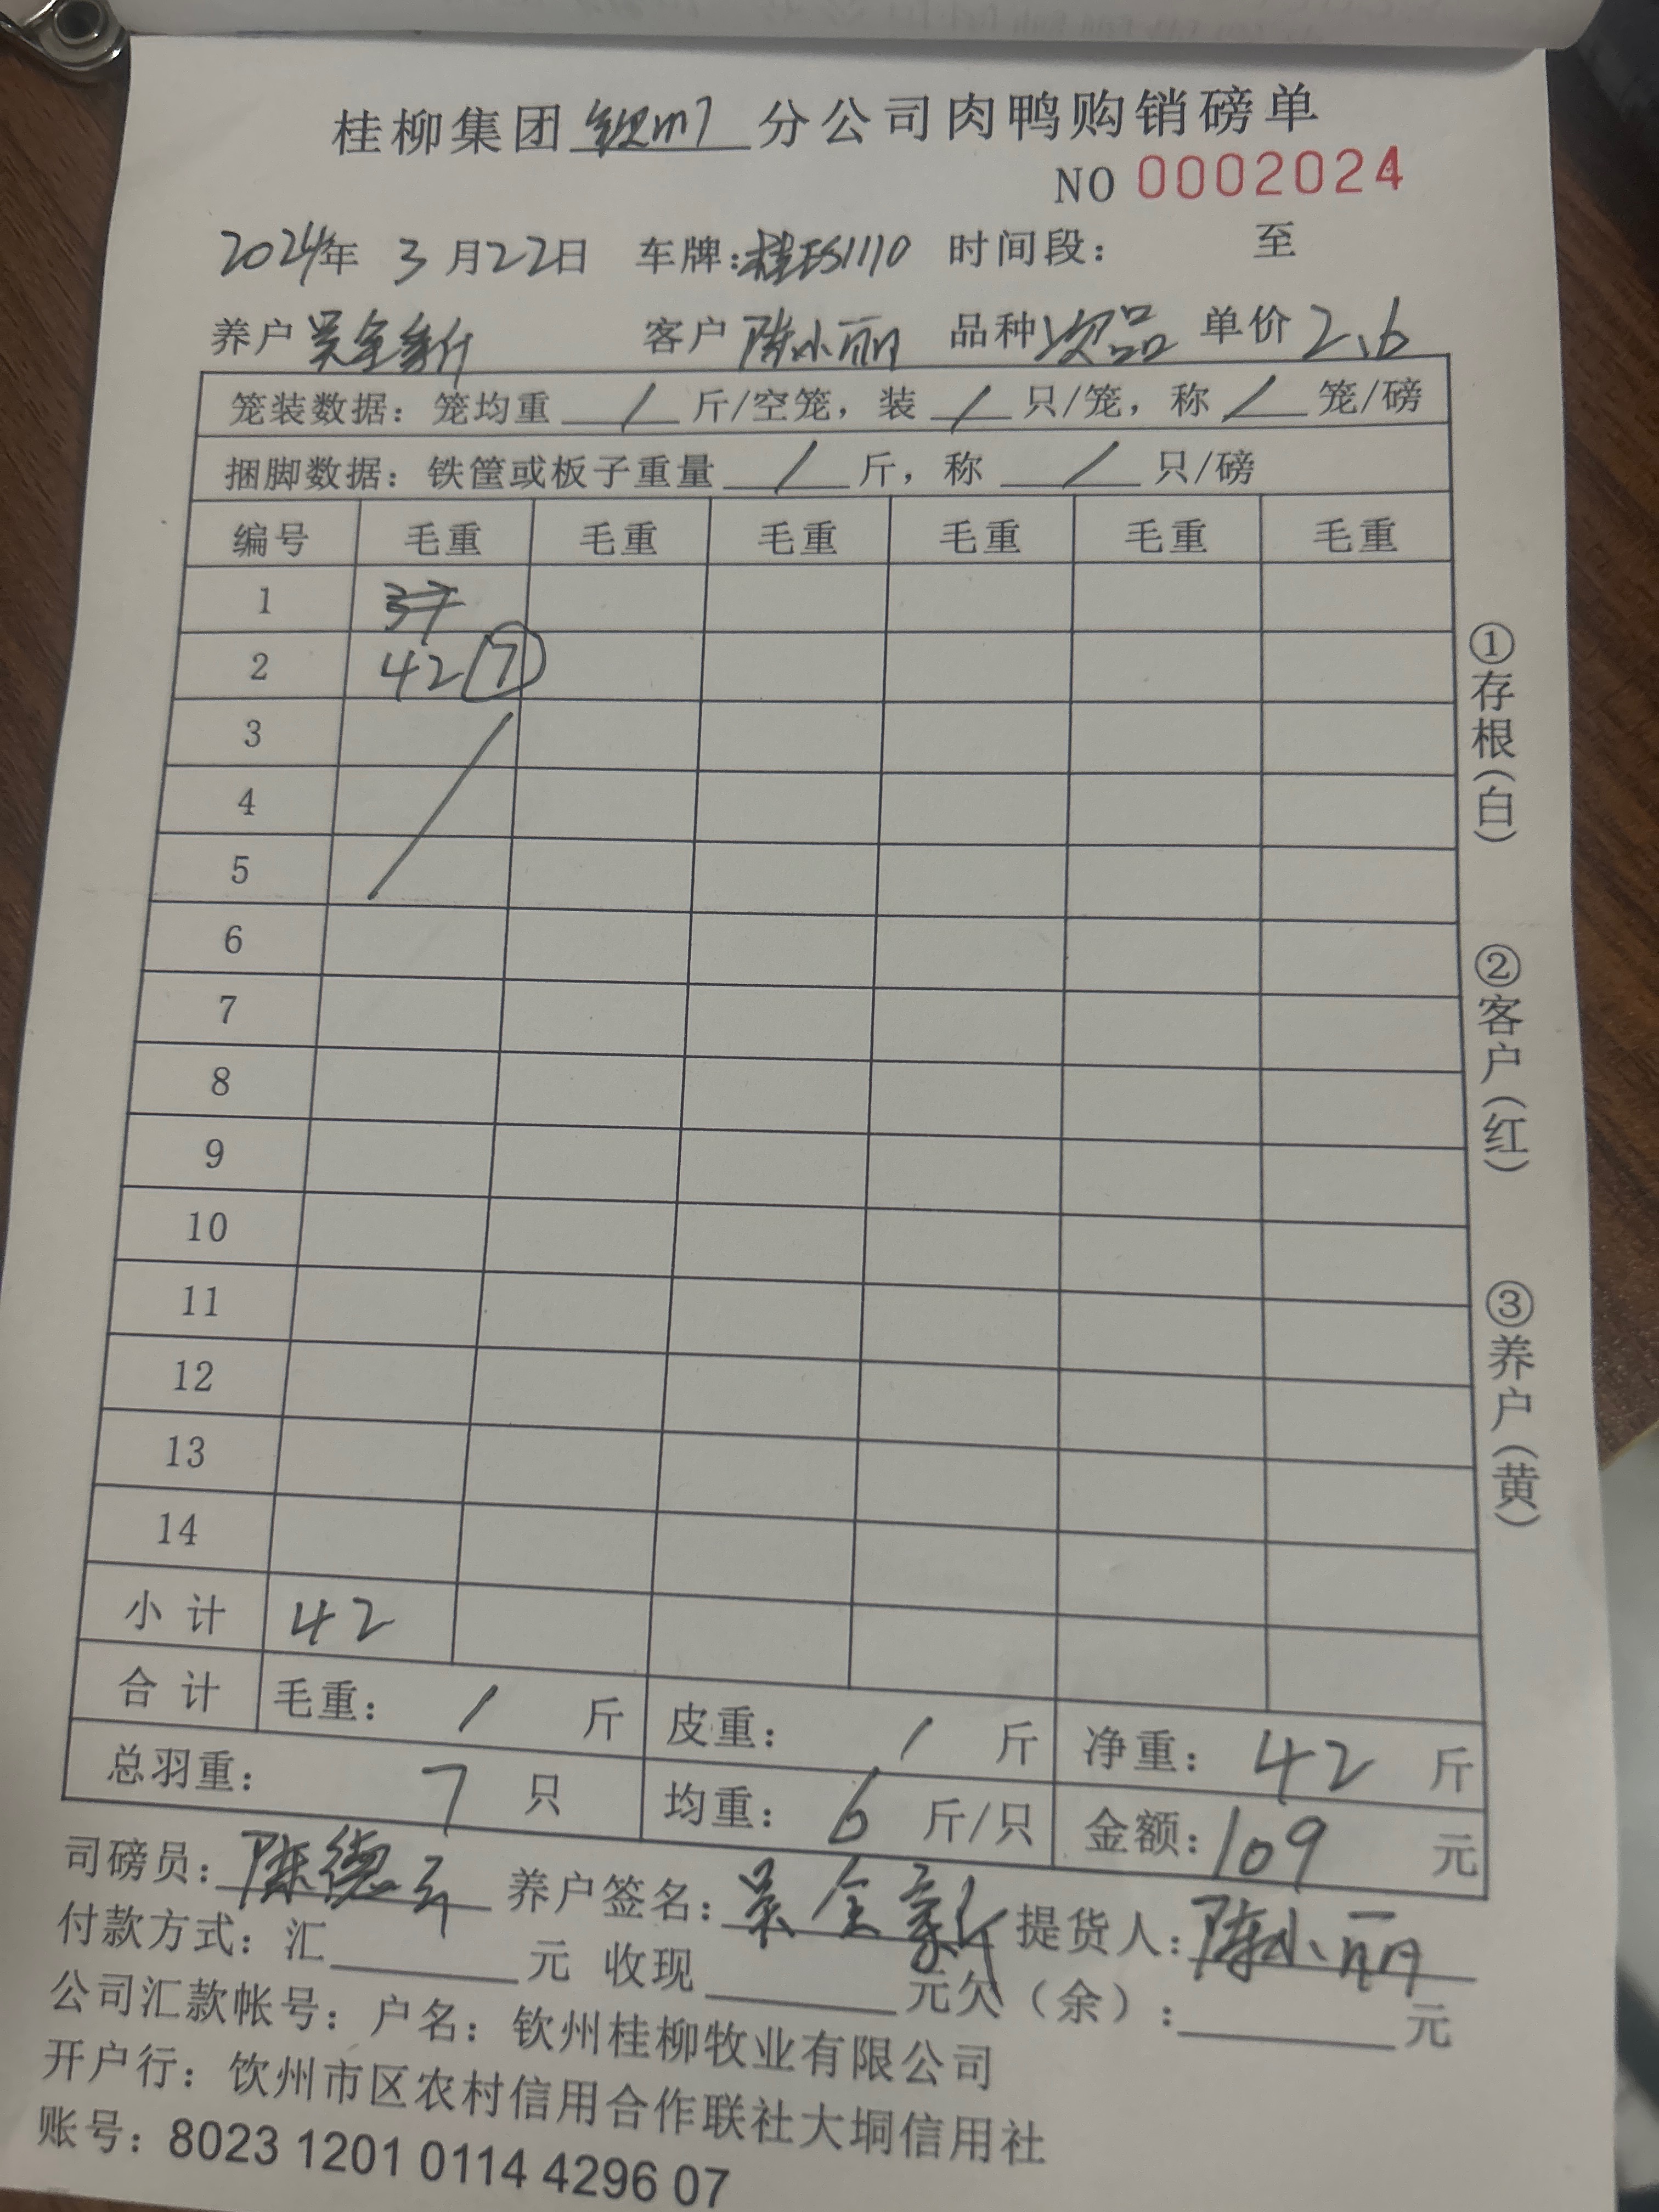 桂柳集团钦州分公司肉鸭购销磅单
NO 0002024
2024年 3月22日 车牌:桂ES1110 时间段: 至
养户 吴全 客户 陈小丽 品种 次品 单价 2.6
笼装数据:笼均重 / 斤/空笼,装 / 只/笼,称 / 笼/磅
捆脚数据:铁筐或板子重量 / 斤,称 / 只/磅
编号 毛重 毛重 毛重 毛重 毛重 毛重
1
2 42 7
3
4
5
6
7
8
9
10
11
12
13
14
小计 42
合计 毛重: / 斤 皮重: / 斤 净重: 42 斤
总羽重: 7 只 均重: 6 斤/只 金额: 109 元
司磅员:陈德 养户签名:吴全 提货人:陈小丽
付款方式:汇 元 收现 元欠(余): 元
公司汇款帐号:户名:钦州桂柳牧业有限公司
开户行:饮州市区农村信用合作联社大垌信用社
账号:8023 1201 0114 4296 07
①存根(白)
②客户(红)
③养户(黄)